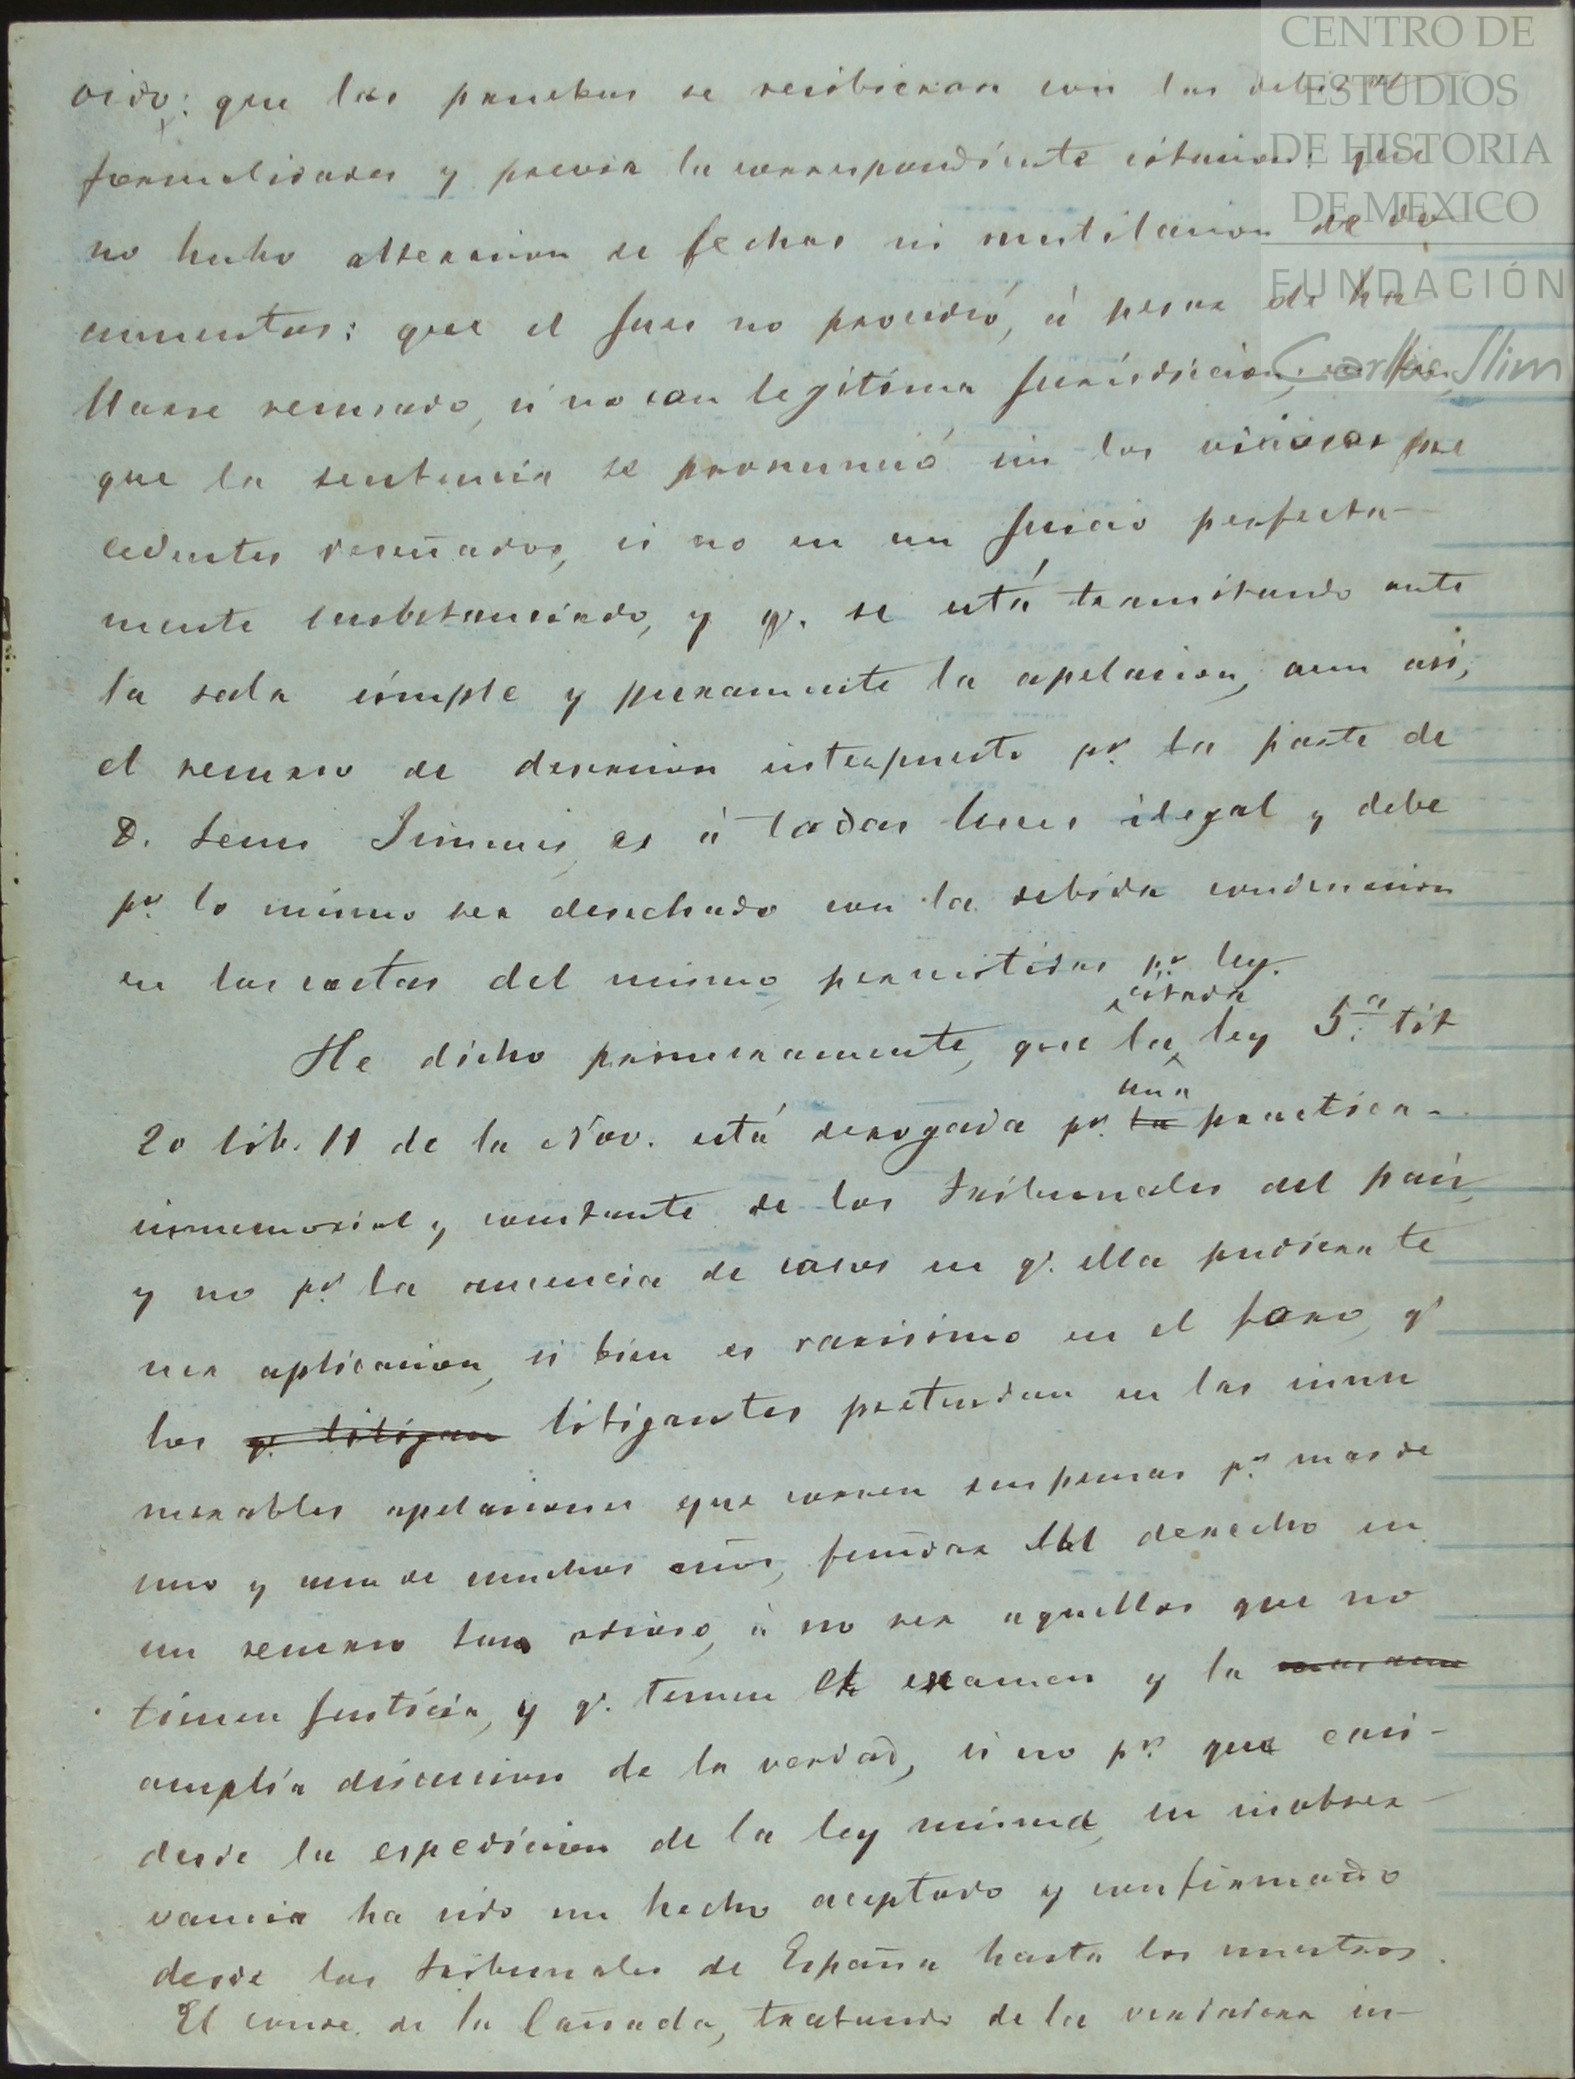 CENTRO DE
ESTUDIOS
DE HISTORIA
DE MEXICO
FUNDACIÓN
Carlos Slim
oido: que las pruebas se recibieran con las debidas
formalidades y previa la correspondiente citacion: que
no hubo alteracion de fechas ni mutilacion de do
cumentos: que el Juez no procedió, á pesar de ha
llarse recusado, si no con legitima Jurisdiccion;
que la sentencia se pronunció sin los viciosos pre
cedentes reseñados, si no en un Juicio perfecta-
mente substanciado, y q.e se está tramitando ante
la sala simple y puramente la apelacion, aun asi,
el recurso de desercion interpuesto p.r la parte de
D. Jimenez, es á todas luces ilegal y debe
p.r lo mismo ser desechado con la debida condenacion
en las costas del mismo, permitidas p.r ley.
He dicho primeramente, que la citada ley 5.a tit
20 lib. 11 de la Nov. está derogada p.r la una practica-
inmemorial y constante de los tribunales del pais,
y no p.r la ausencia de casos en q.e ella pudiera te
ner aplicacion, si bien es rarisimo en el foro, q.e
los q.e litigan litigantes pretendan en las innu
merables apelaciones que corren suspensas p.r mas de
uno y aun de muchos años, fundar el derecho en
un recurso tan odioso, á no ser aquellos que no
tienen Justicia, y q.e temen el examen y la
amplia discusion de la verdad, si no p.r que casi-
desde la espedicion de la ley misma, su inobser-
vancia ha sido un hecho aceptado y confirmado
desde los tribunales de España hasta los nuestros.
El conde de la Cañada, tratando de la verdadera in-